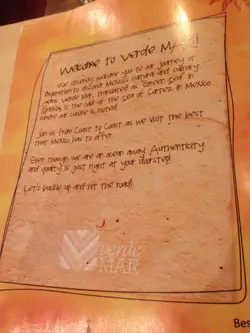 Welcome to Verde Mar!
We warmly welcome you to our journey of
inspiration to discover Mexico's cultural and culinary
gems. Verde Mar, translated as "Green Sea" in
Spanish, is the color of the Sea of Cortez in Mexico
where our cuisine is rooted.
Join us from Coast to Coast as we visit the best
that Mexico has to offer.
Even though we are an ocean away, Authenticity
and quality is just right at your doorstep!
Let's buckle up and hit the road!
verde
MAR
Bes